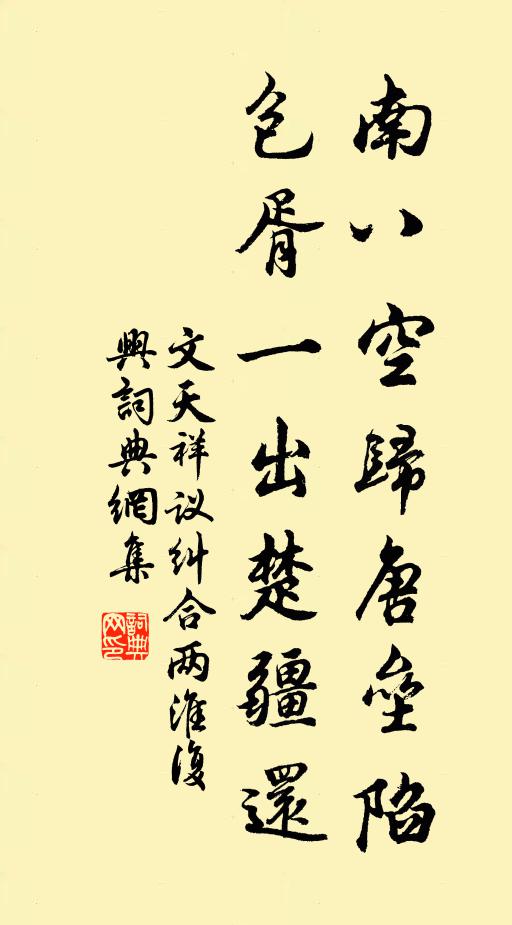 南八空歸唐壘陷
包胥一出楚疆還
文天祥议纠合两淮復
興詞典網集
詞典
网印